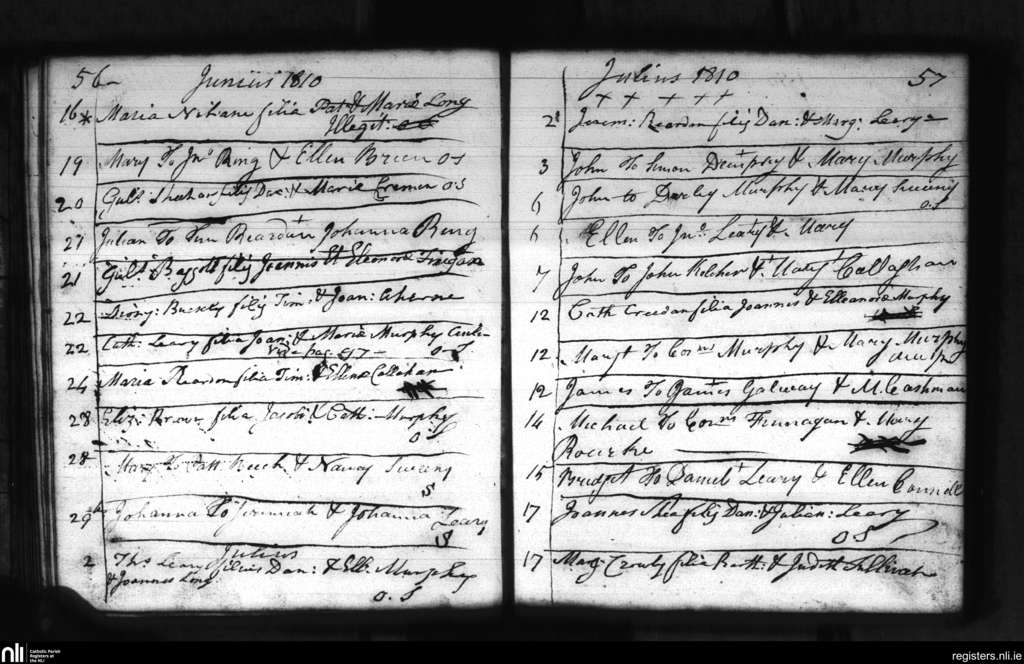 56
Junius 1810
16 Maria Nihane filia Pat & Maria Long
Illegit:
19 Mary To Jno Ring & Ellen Brien OS
20 Gul: Sheehan filij Dan: & Maria Cremen OS
27 Julian To Reardan Johanna Ring
21 Gul: Baggott filij Joannis Et Eleonora
22 Diony: Buckly filij Tim: & Joan: Aherne
22 Cath: Leary filia Joan: & Maria Murphy
Vide pag 57 OS
24 Maria Reardon filia Tim: & Ellena Callahan
28 Eliz: Brown filia Jacobi & Cath: Murphy
OS
28 Mary To Patt & Nancy Sweeny
29 Johanna To Jeremiah & Johanna Leary
Julius
2 Ths Leary filius Dan: & Ell: Murphy
& Joannes Long
O.S
Julius 1810
57
2 Jerem: Reardon filij Dan: & Marg: Leary
3 John To Simon Dempsey & Mary Murphy
6 John to Darby Murphy & Mary Sweeny
O.S
6 Ellen To Jno: Leary & Mary
7 John To John Keleher & Callaghan
12 Cath Creedan filia Joannis & Elleanora Murphy
12 Margt To Corns Murphy & Mary Murphy
12 James To James Galway & M. Cashman
14 Michael To Corns Finnagan & Mary
Rourke
15 Bridget To Daniel Leary & Ellen Connell
17 Joannes Shea filij Dan: & Julian: Leary
O.S
17 Marg: Crowly filia Barth: & Judith Sullivan
nli
Catholic Parish
Registers at
the NLI
registers.nli.ie